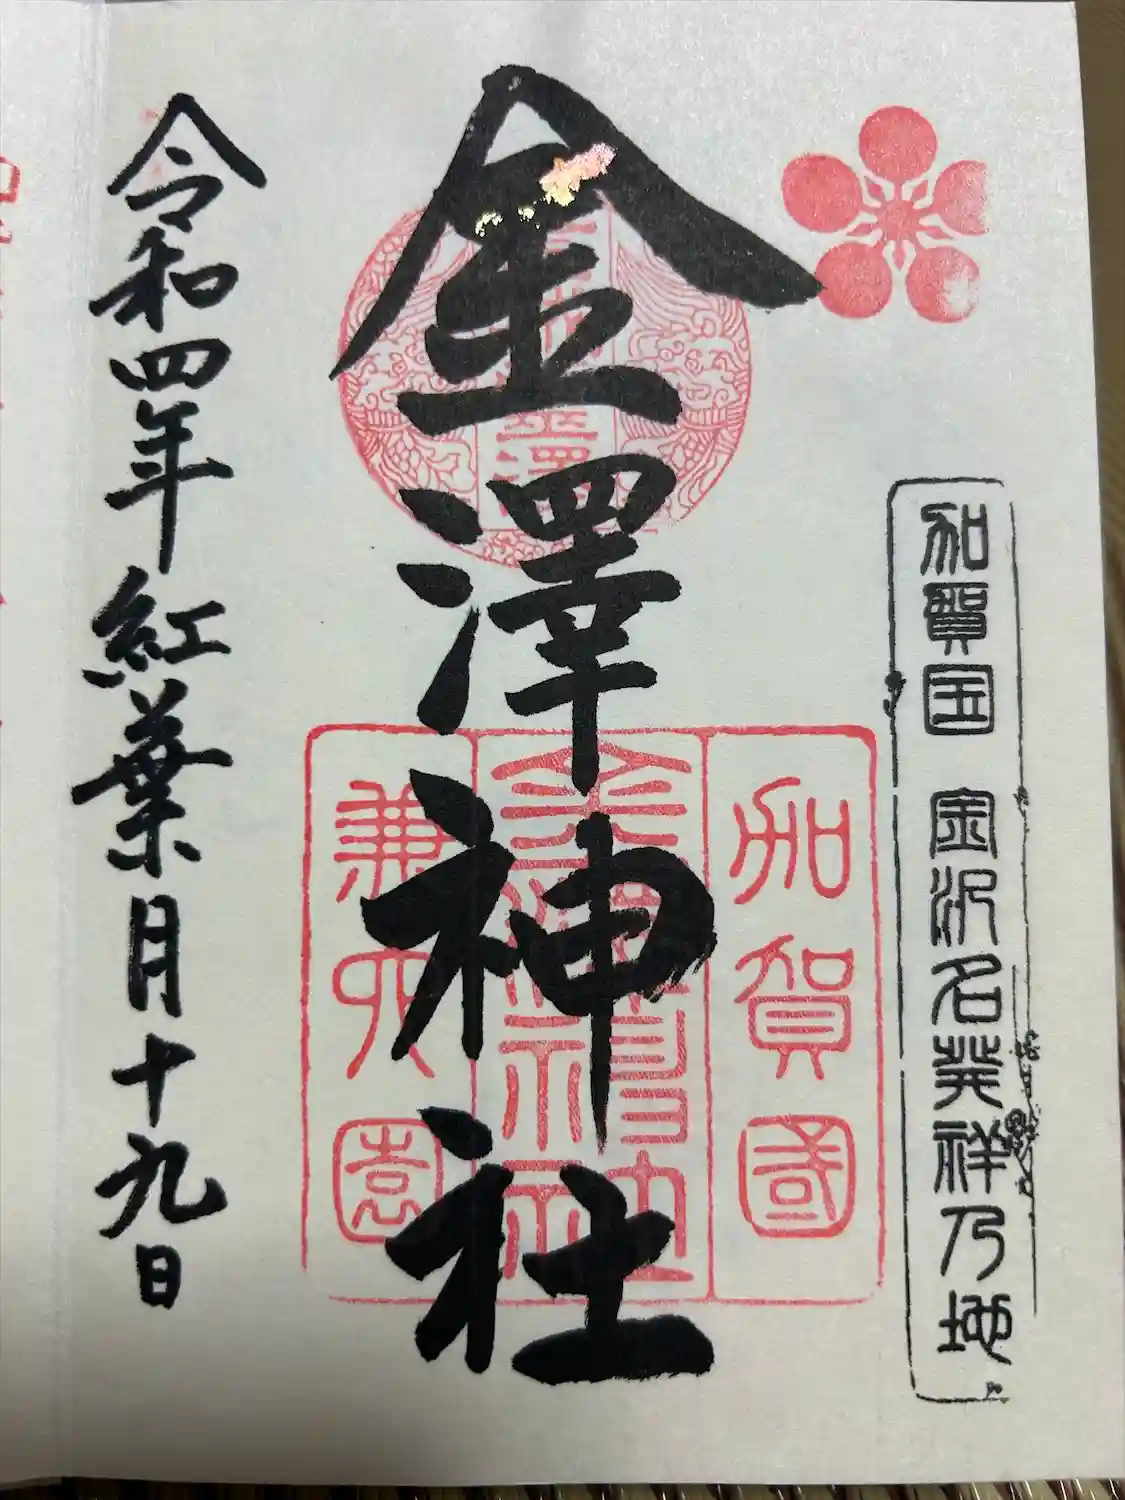 加賀国 金沢名発祥乃地
金澤神社
加賀國
兼六園
令和四年紅葉月十九日